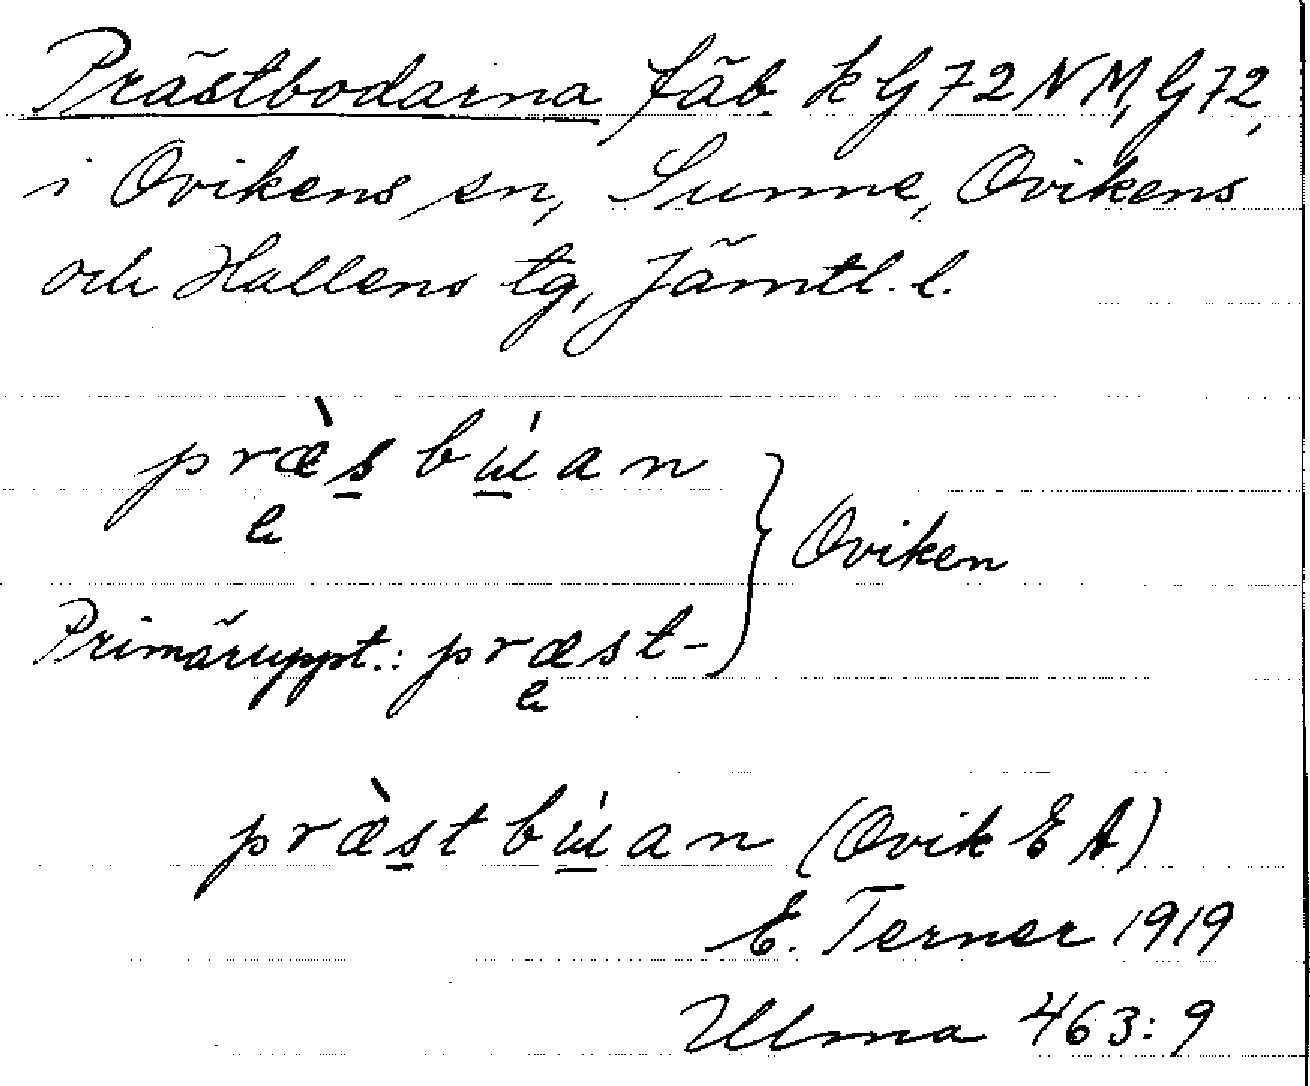 Prästbodarna fäb. k G 72 NM, G 72,
i Ovikens sn, Sunne, Ovikens
och Hallens tg, Jämtl. l.
præ̀s̱bɯ̱́an
e
Oviken
Primäruppt.: præst-
e
præ̀s̱tbɯ̱́an (Ovik E A)
E. Terner 1919
Ulma 463:9